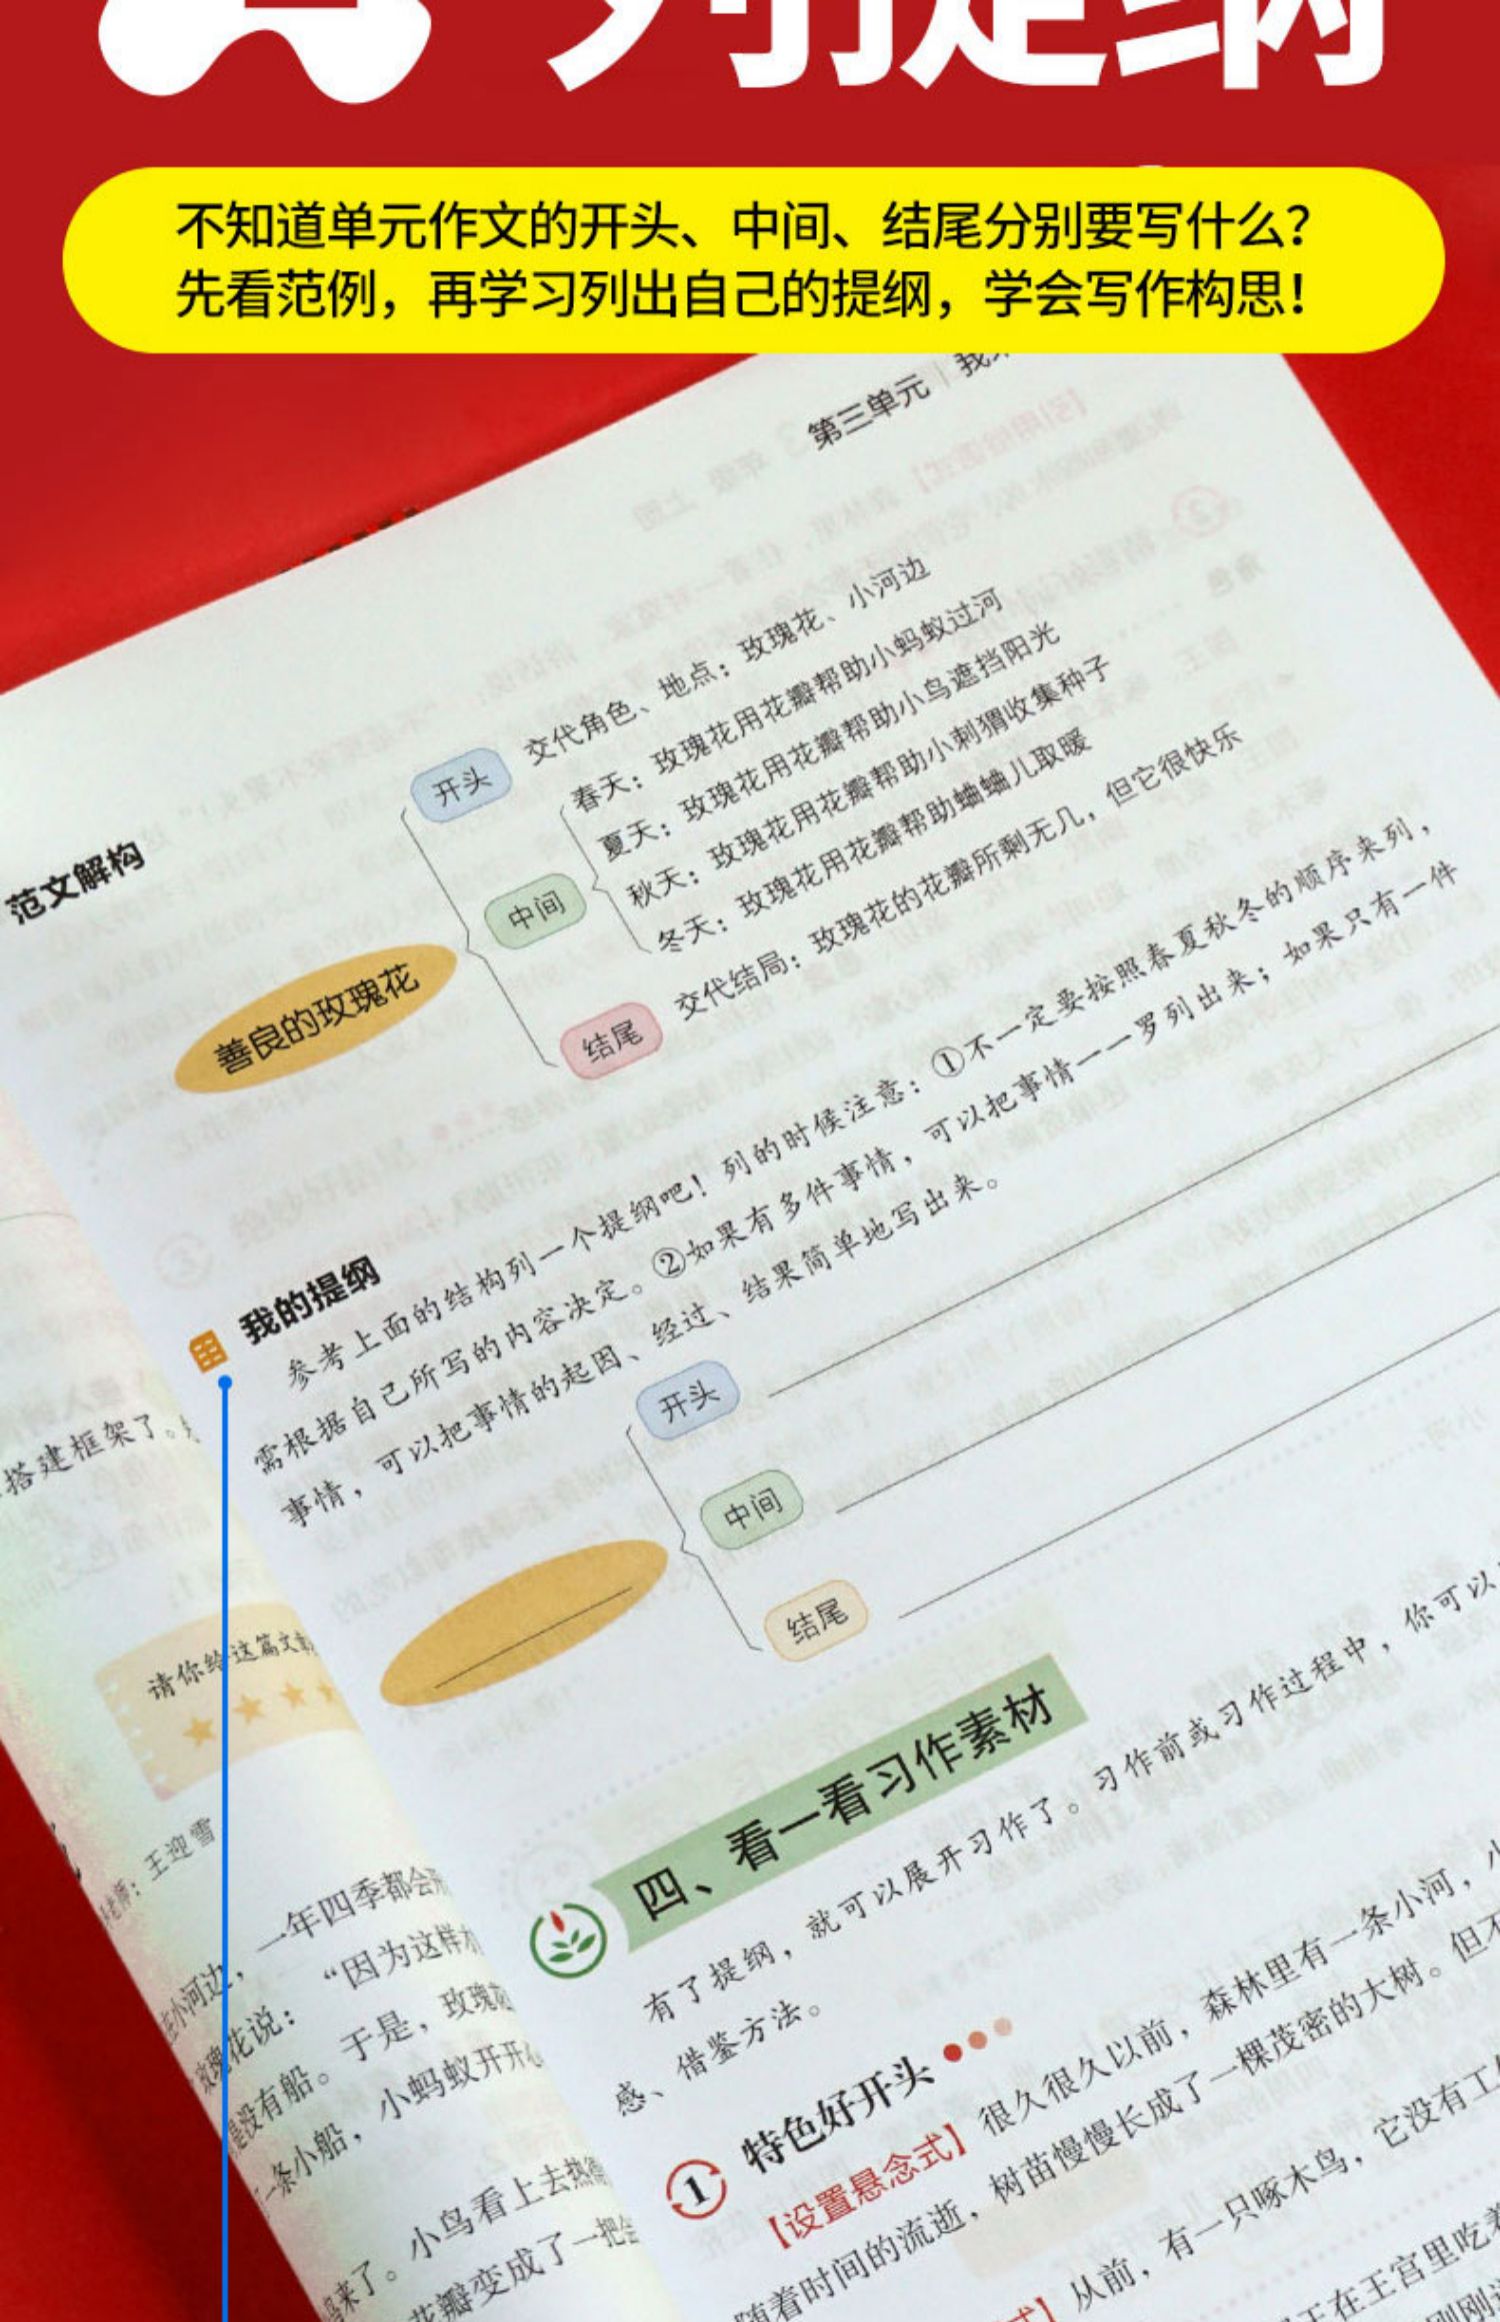 列提纲
不知道单元作文的开头、中间、结尾分别要写什么？
先看范例，再学习列出自己的提纲，学会写作构思！
第三单元｜我
范文解构
善良的玫瑰花
开头
交代角色、地点：玫瑰花、小河边
中间
春天：玫瑰花用花瓣帮助小蚂蚁过河
夏天：玫瑰花用花瓣帮助小鸟遮挡阳光
秋天：玫瑰花用花瓣帮助小刺猬收集种子
冬天：玫瑰花用花瓣帮助蛐蛐儿取暖
结尾
交代结局：玫瑰花的花瓣所剩无几，但它很快乐
我的提纲
参考上面的结构列一个提纲吧！列的时候注意：①不一定要按照春夏秋冬的顺序来列，
需根据自己所写的内容决定。②如果有多件事情，可以把事情一一罗列出来；如果只有一件
事情，可以把事情的起因、经过、结果简单地写出来。
开头
中间
结尾
四、看一看习作素材
有了提纲，就可以展开习作了。习作前或习作过程中，你可以
感、借鉴方法。
1 特色好开头
【设置悬念式】很久很久以前，森林里有一条小河，小
随着时间的流逝，树苗慢慢长成了一棵茂密的大树。但不
式】从前，有一只啄木鸟，它没有工作
在王宫里吃着
搭建框架了。
请你给这篇文章
王迎雪
小河边，一年四季都会
玫瑰花说：“因为这样
是没有船。于是，玫瑰花
一条小船，小蚂蚁开开心
来了。小鸟看上去热得
花瓣变成了一把